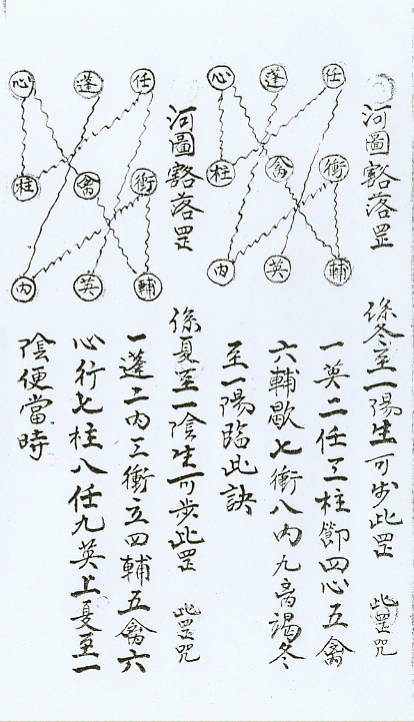 河圖豁落罡
係冬至一陽生可步此罡 此罡咒
一英二任三柱節四心五禽
六輔歇七衝八內九离竭冬
至一陽臨此訣
任
蓬
心
衝
禽
柱
輔
英
內
河圖豁落罡
係夏至一陰生可步此罡 此罡咒
一蓬二內三衝立四輔五禽六
心行七柱八任九英上夏至一
陰便當時
任
蓬
心
衝
禽
柱
輔
英
內